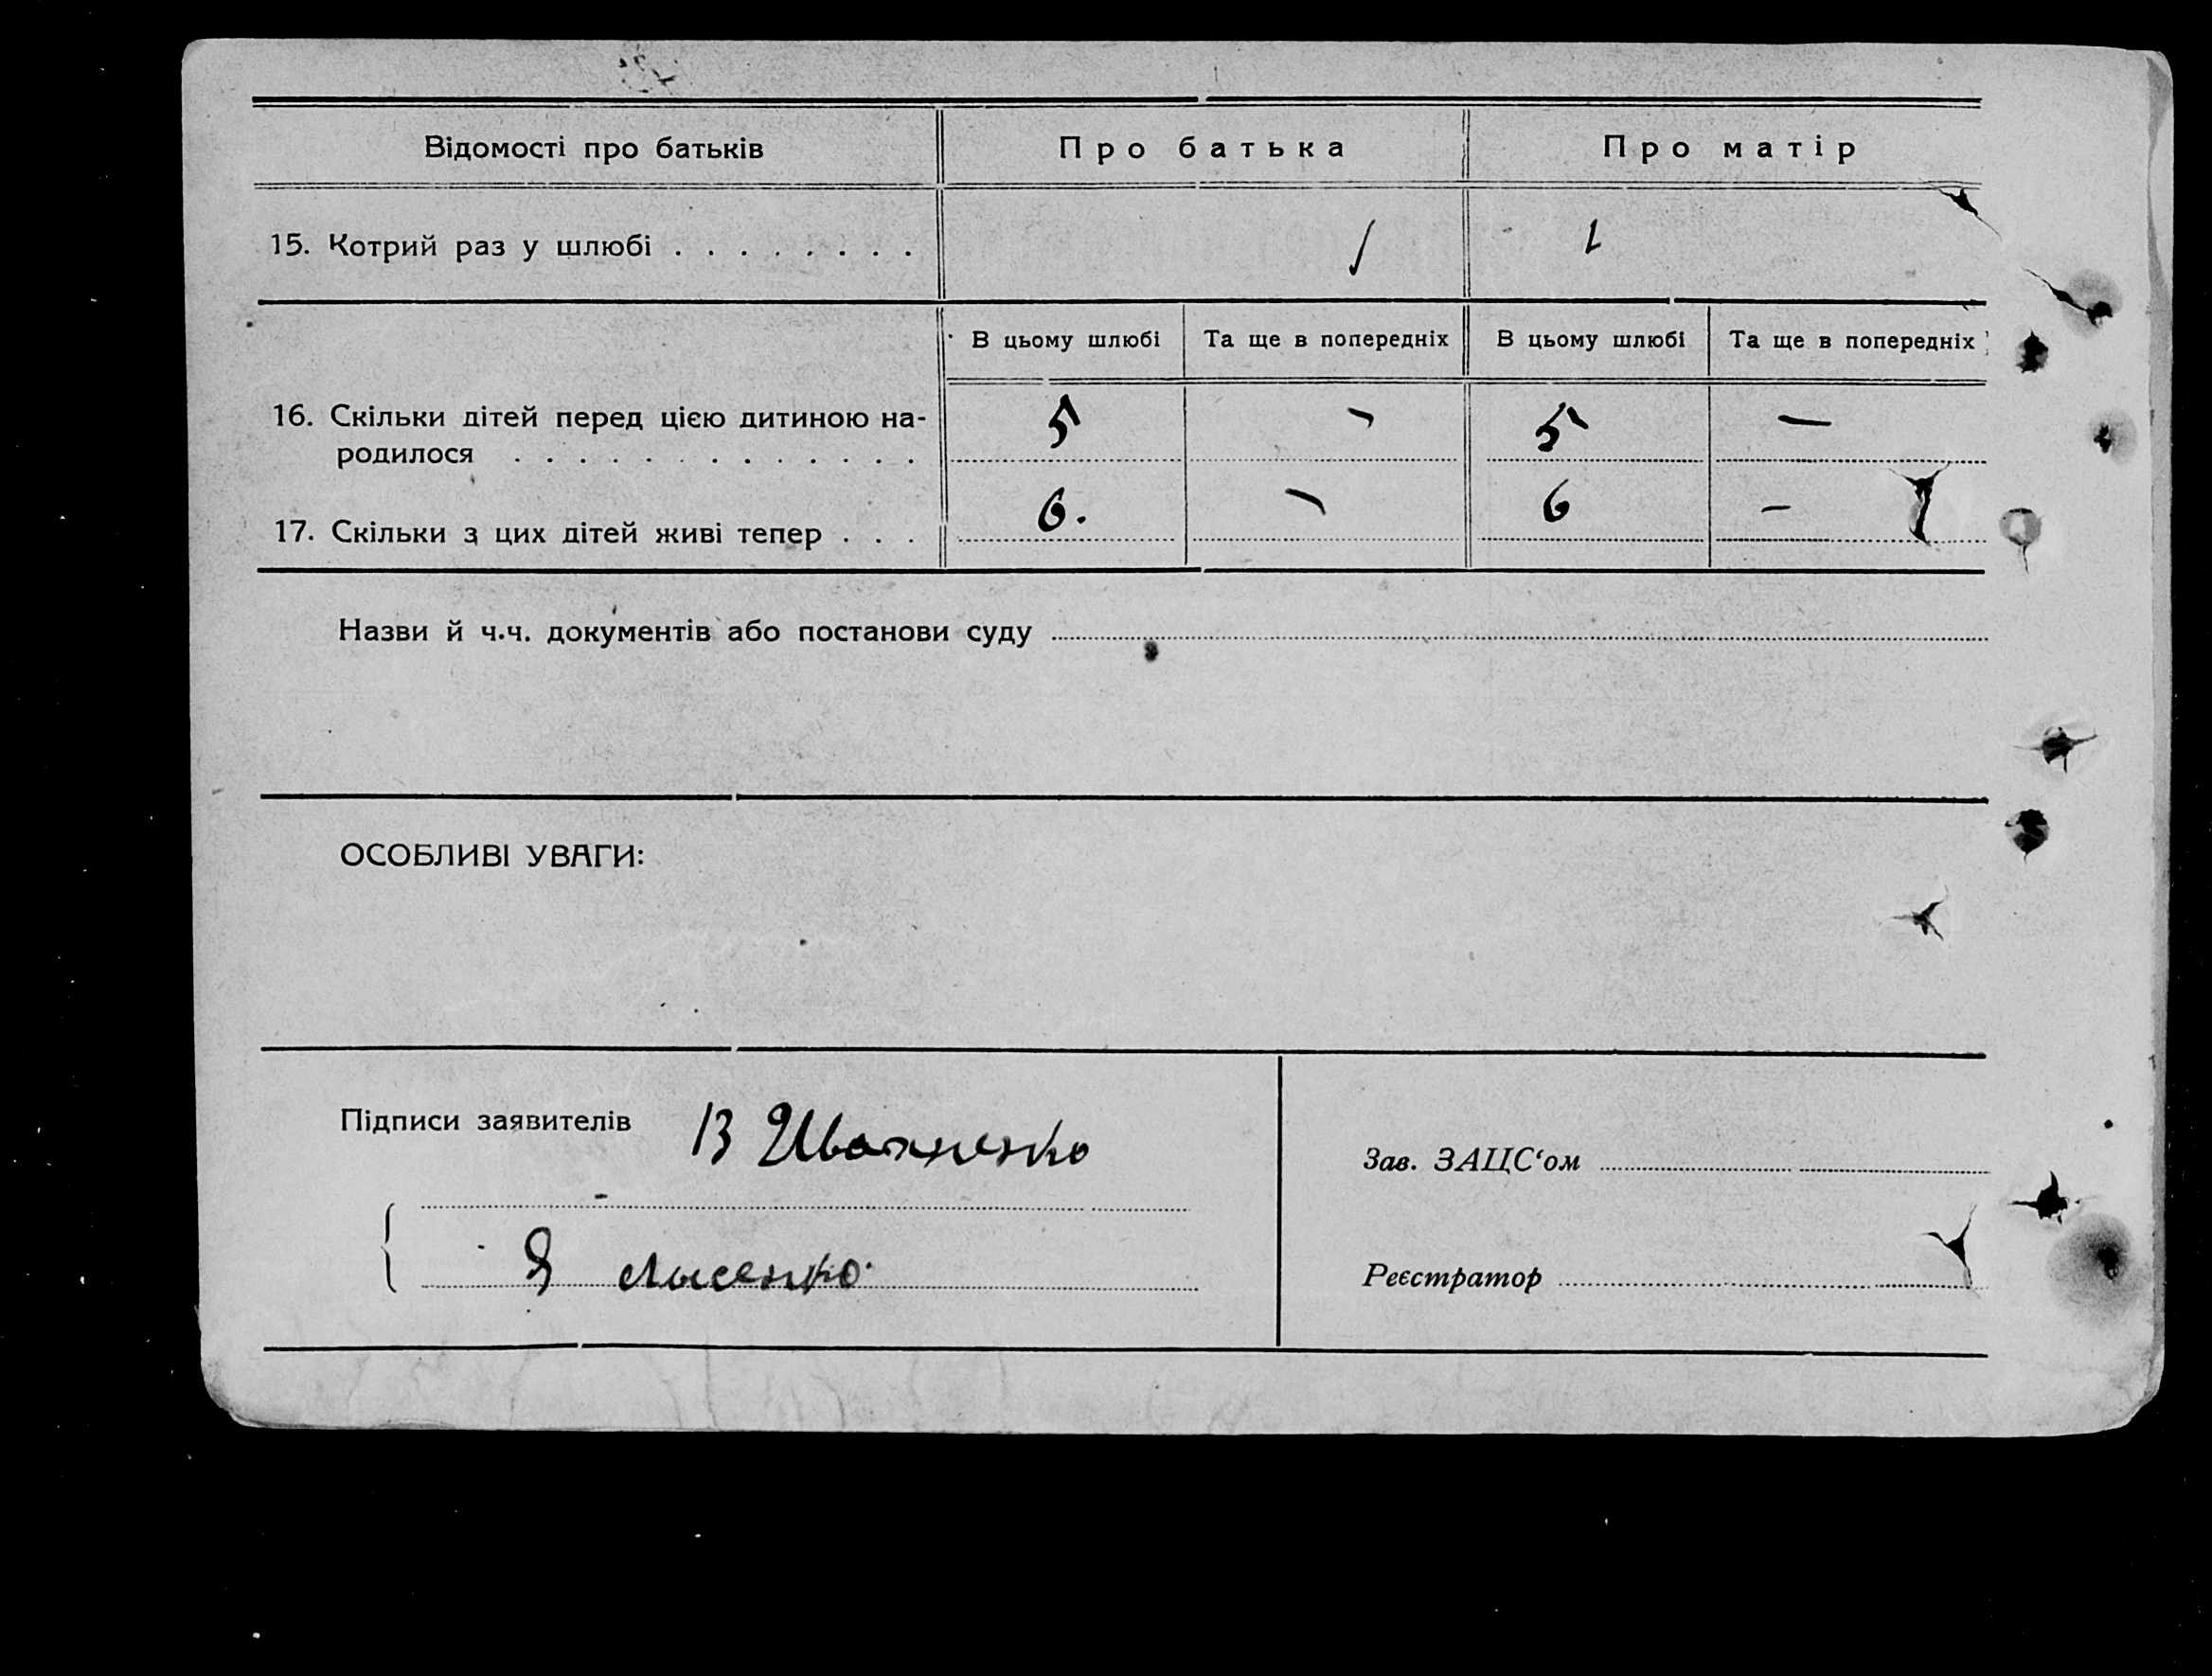 Відомості про батьків Про батька Про матір
15. Котрий раз у шлюбі . . . . . . . . 1 1
В цьому шлюбі Та ще в попередніх В цьому шлюбі Та ще в попередніх
16. Скільки дітей перед цією дитиною на- 5 - 5 -
родилося . . . . . . . . . . . . .
17. Скільки з цих дітей живі тепер . . . 6. - 6 -
Назви й ч.ч. документів або постанови суду
ОСОБЛИВІ УВАГИ:
Підписи заявителів В Ивахненко
Я Лисенко
Зав. ЗАЦС‘ом
Реєстратор